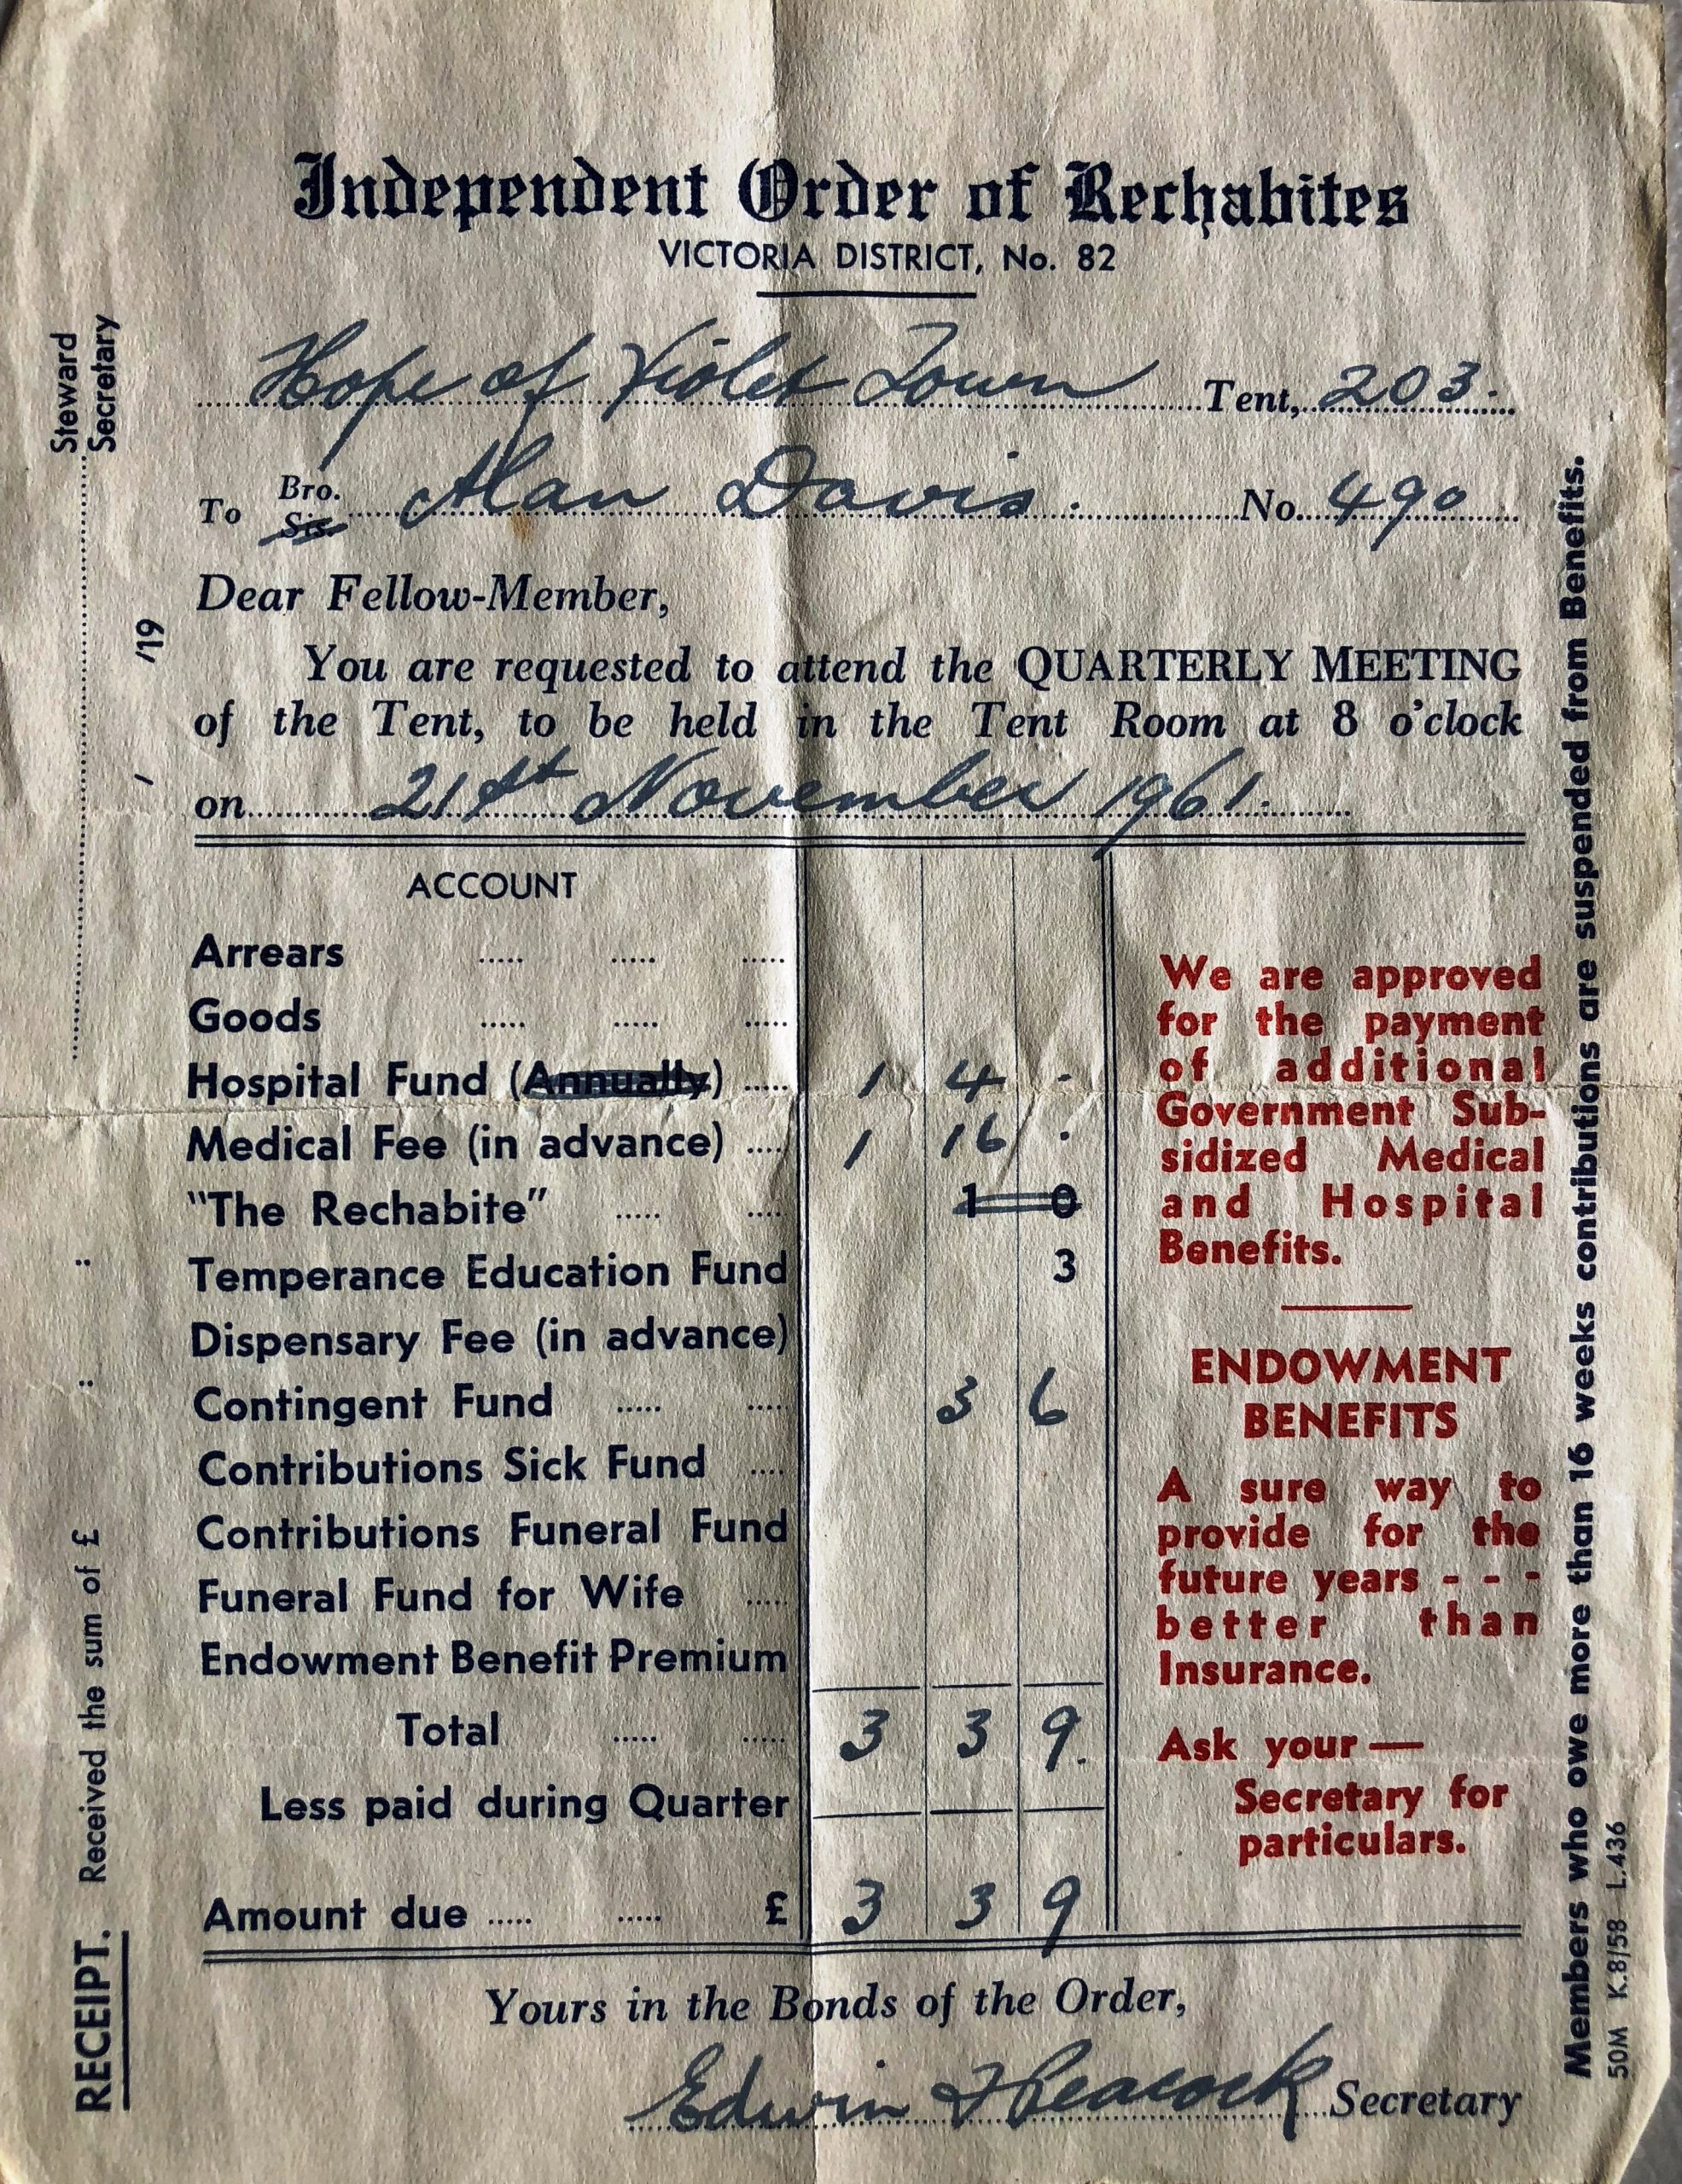 Independent Order of Rechabites
VICTORIA DISTRICT, No. 82
Hope of Violet Town Tent, 203.
To Bro. Sis. Alan Davis. No. 490
Dear Fellow-Member,
You are requested to attend the QUARTERLY MEETING
of the Tent, to be held in the Tent Room at 8 o'clock
on 21st November 1961.
ACCOUNT
Arrears
Goods
Hospital Fund (Annually) 1 4 -
Medical Fee (in advance) 1 16 .
"The Rechabite" 1 0
Temperance Education Fund 3
Dispensary Fee (in advance)
Contingent Fund 3 6
Contributions Sick Fund
Contributions Funeral Fund
Funeral Fund for Wife
Endowment Benefit Premium
Total 3 3 9.
Less paid during Quarter
Amount due £ 3 3 9
We are approved
for the payment
of additional
Government Sub-
sidized Medical
and Hospital
Benefits.
ENDOWMENT
BENEFITS
A sure way to
provide for the
future years - - -
better than
Insurance.
Ask your —
Secretary for
particulars.
Yours in the Bonds of the Order,
Edwin Peacock Secretary
RECEIPT. Received the sum of £ " "
/ /19
Steward
Secretary
Members who owe more than 16 weeks contributions are suspended from Benefits.
50M K.8/58 L.436